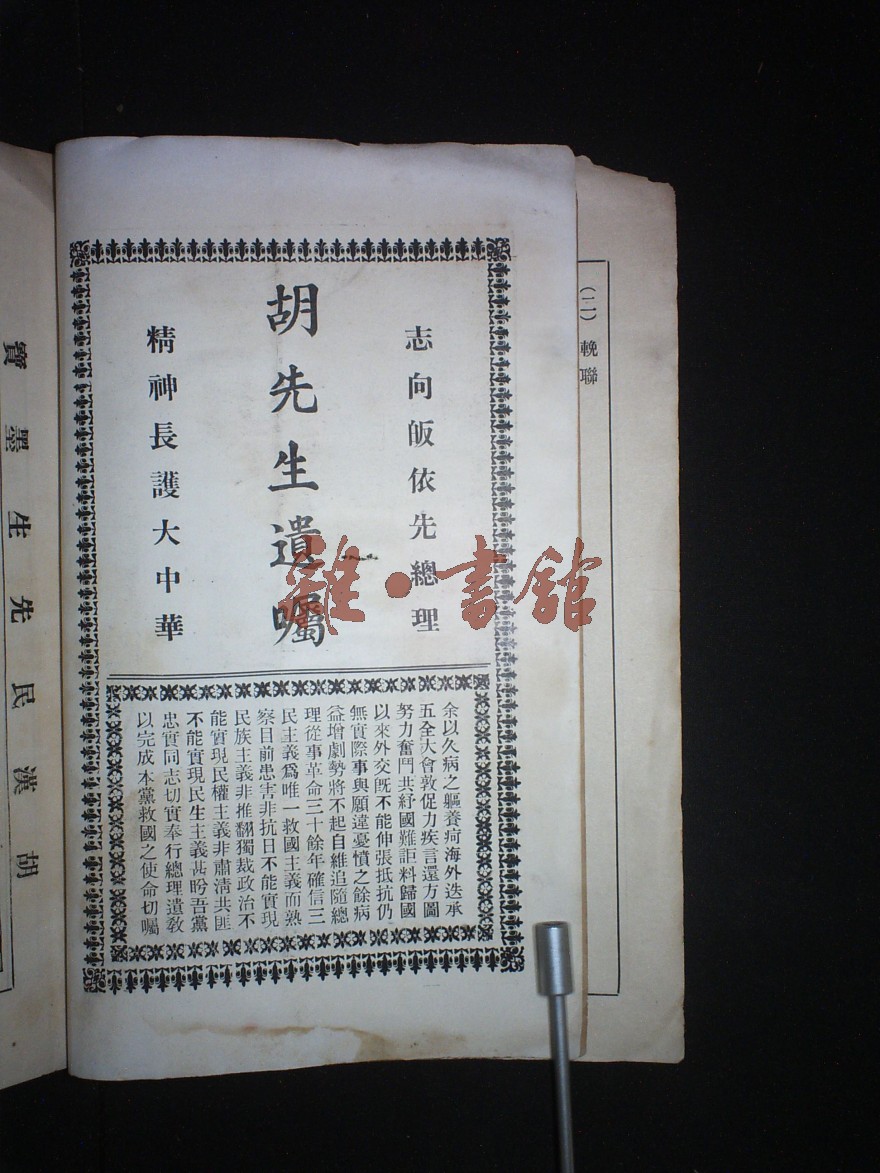 (二) 輓聯
志向皈依先總理
胡先生遺囑
精神長護大中華
余以久病之軀養疴海外迭承
五全大會敦促力疾言還方圖
努力奮鬥共紓國難詎料歸國
以來外交旣不能伸張抵抗仍
無實際事與願違憂憤之餘病
益增劇勢將不起自維追隨總
理從事革命三十餘年確信三
民主義爲唯一救國主義而熟
察目前患害非抗日不能實現
民族主義非推翻獨裁政治不
能實現民權主義非肅淸共匪
不能實現民生主義甚盼吾黨
忠實同志切實奉行總理遺敎
以完成本黨救國之使命切囑
胡漢民先生墨寶
雜·書館